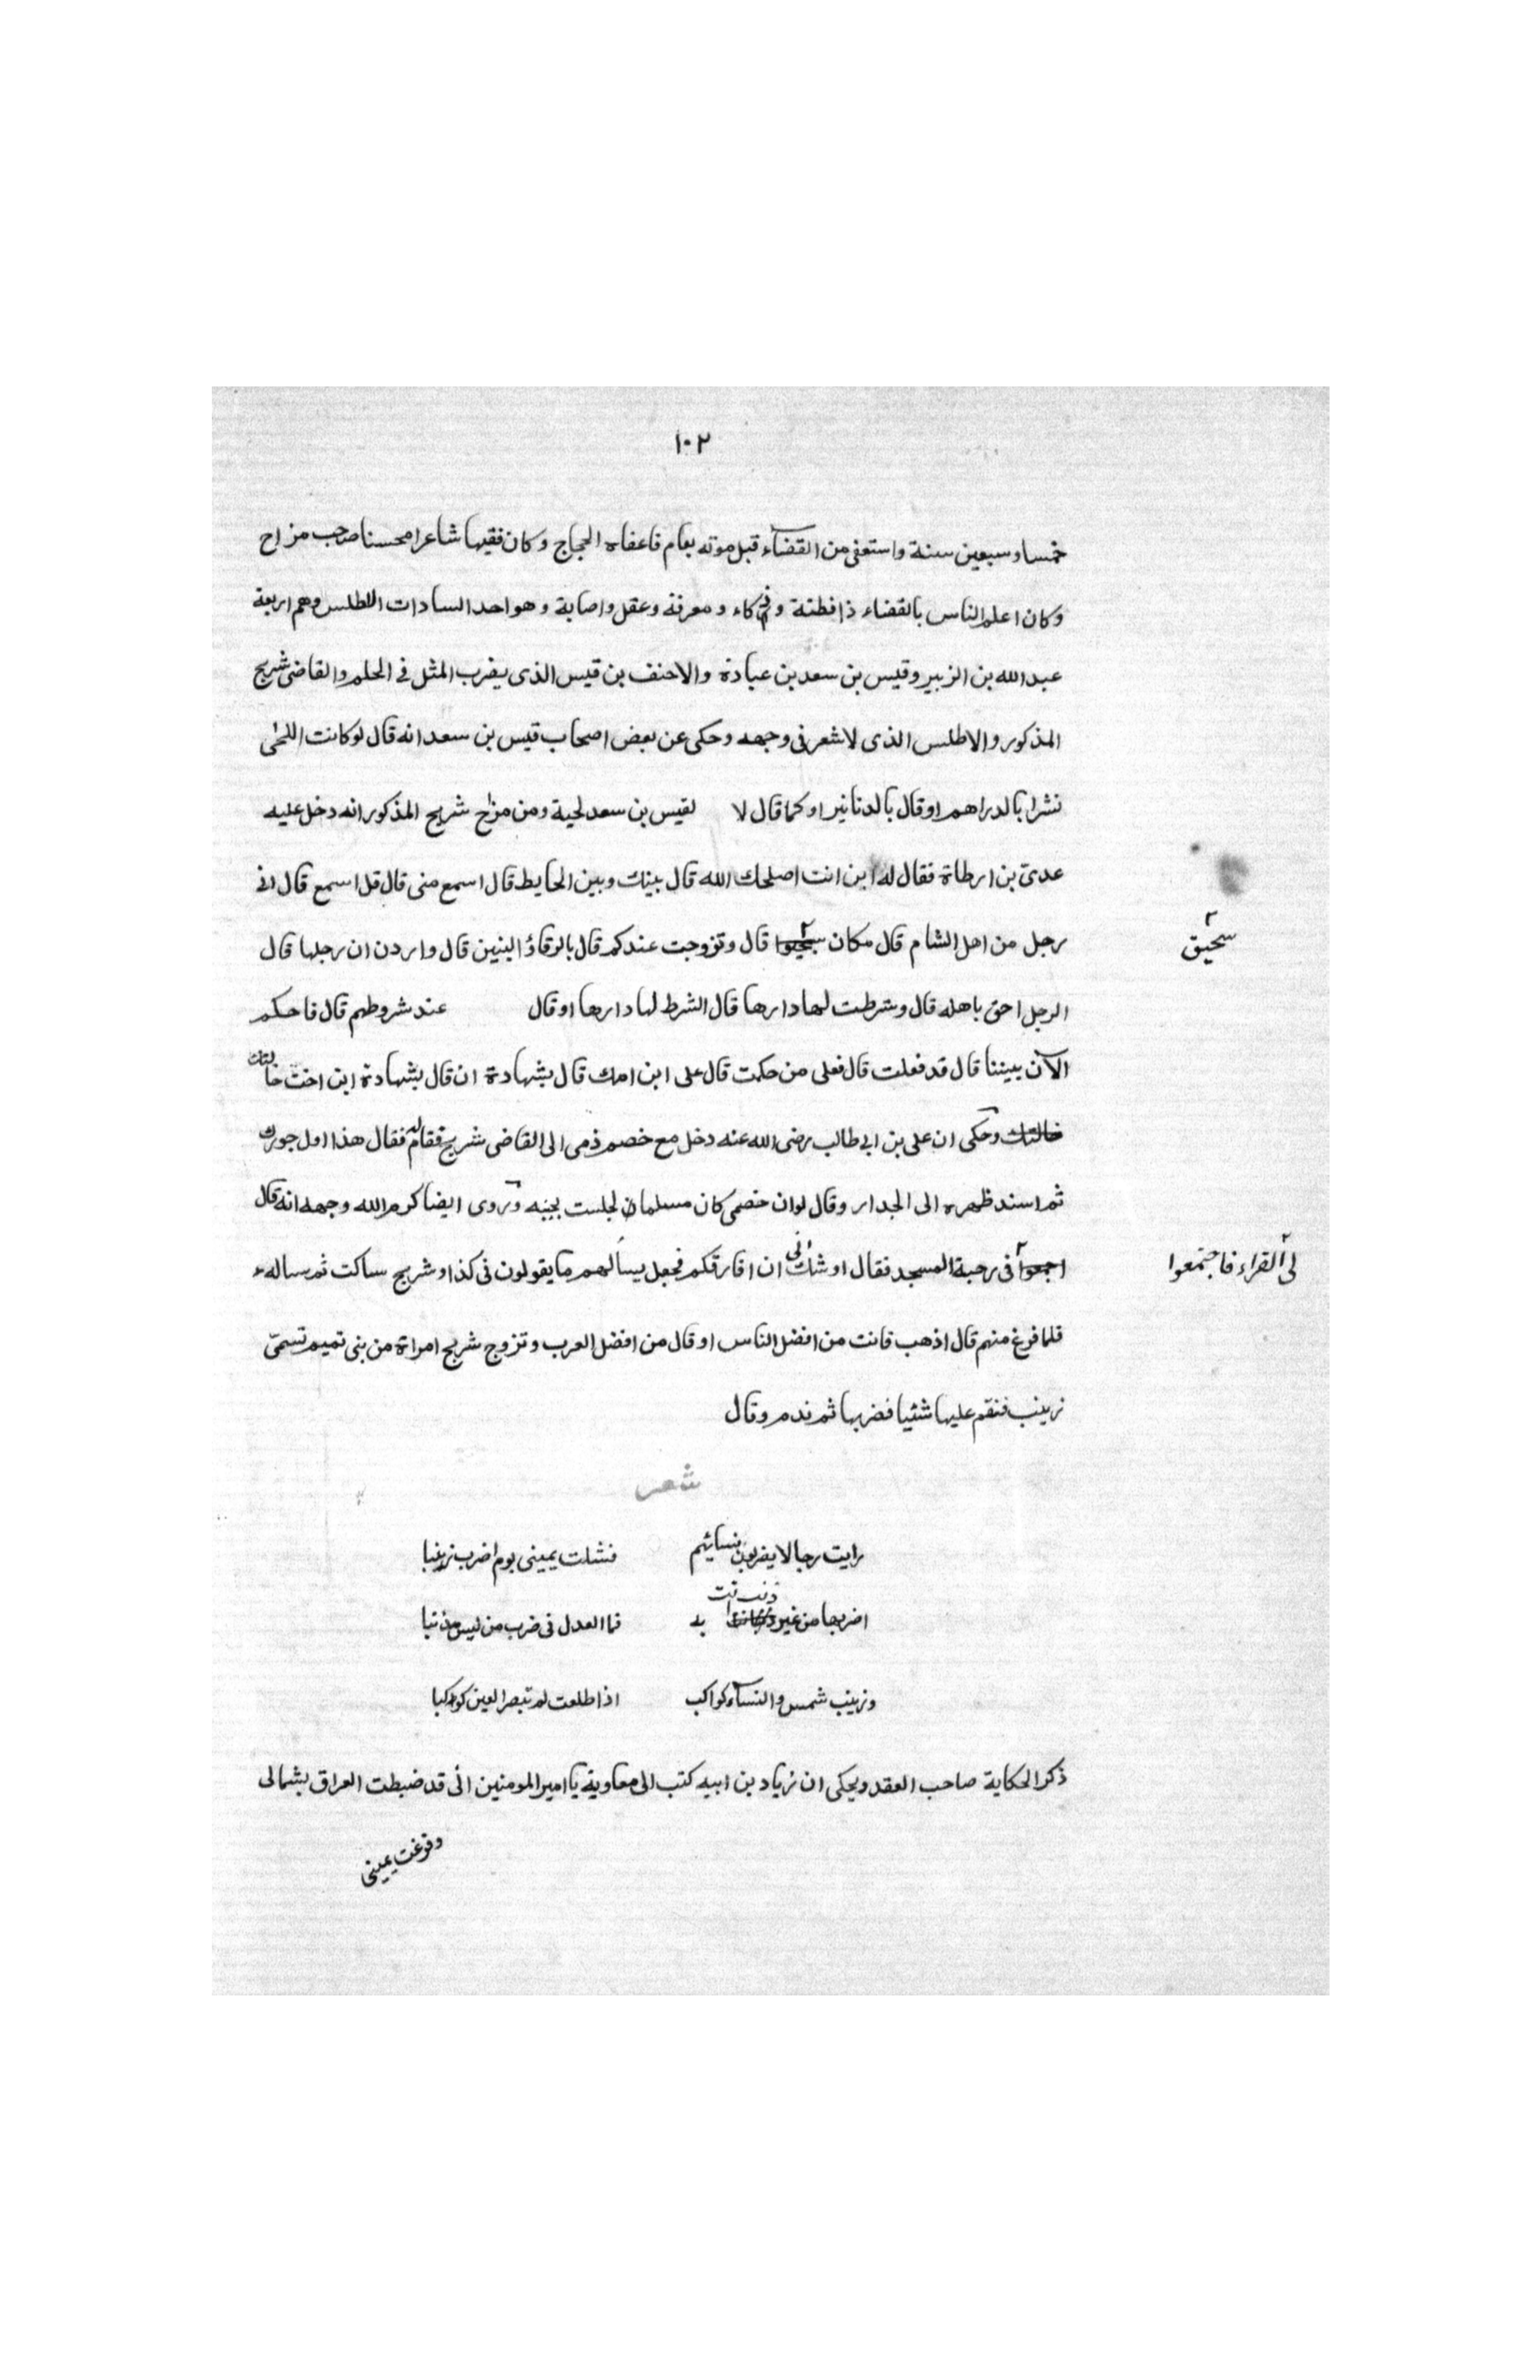 ١٠٢
خمسا وسبعين سنة واستعفى من القضاء قبل موته بعام فاعفاه الحجاج وكان فقيها شاعرا محسنا صاحب مزاح
وكان اعلم الناس بالقضاء ذا فطنة وذكاء ومعرفة وعقل واصابة وهو احد السادات الاطلس وهم اربعة
عبد الله بن الزبير وقيس بن سعد بن عبادة والاحنف بن قيس الذى يضرب المثل فى الحلم والقاضى شريح
المذكور والاطلس الذى لا شعر فى وجهه وحكى عن بعض اصحاب قيس بن سعد انه قال لو كانت اللحى
نشرا بالدراهم او قال بالدنانير او كما قال لا لقيس بن سعد لحية ومن مزاح شريح المذكور انه دخل عليه
عدى بن ارطاة فقال له اين انت اصلحك الله قال بينك وبين الحايط قال اسمع منى قال قل اسمع قال انى
رجل من اهل الشام قال مكان سحيق قال وتزوجت عندكم قال بالرفاؤ البنين قال واردن ان رجلها قال
الرجل احق باهله قال وشرطت لها دارها قال الشرط لها دارها او قال عند شروطهم قال فاحكم
الآن بيننا قال قد فعلت قال فعلى من حكمت قال على ابن امك قال بشهادة ان قال بشهادة ابن اخت خالتك
وحكى ان على بن ابى طالب رضى الله عنه دخل مع خصم ذمى الى القاضى شريح فقام له فقال هذا اول جورك
ثم اسند ظهره الى الجدار وقال لو ان خصمى كان مسلما لجلست بجنبه وروى ايضا كرم الله وجهه انه قال
اجمعوا لى القراء فاجتمعوا فى رحبة المسجد فقال اوشك انى ان افارقكم فجعل يسألهم ما يقولون فى كذا وشريح ساكت ثم ساله
فلما فرغ منهم قال اذهب فانت من افضل الناس او قال من افضل العرب وتزوج شريح امراة من بنى تميم تسمّى
زينب فنقم عليها شئيا فضربها ثم ندم وقال
شعر
رايت رجالا يضربون نسائهم فشلت يمينى يوم اضرب زينبا
اضربها من غير ذنب اتت به فما العدل فى ضرب من ليس مذنبا
وزينب شمس والنساء كواكب اذا طلعت لم تبصر العين كوكبا
ذكر الحكاية صاحب العقد ويحكى ان زياد بن ابيه كتب الى معاوية يا امير المومنين انى قد ضبطت العراق بشمالى
وفرغت يمينى